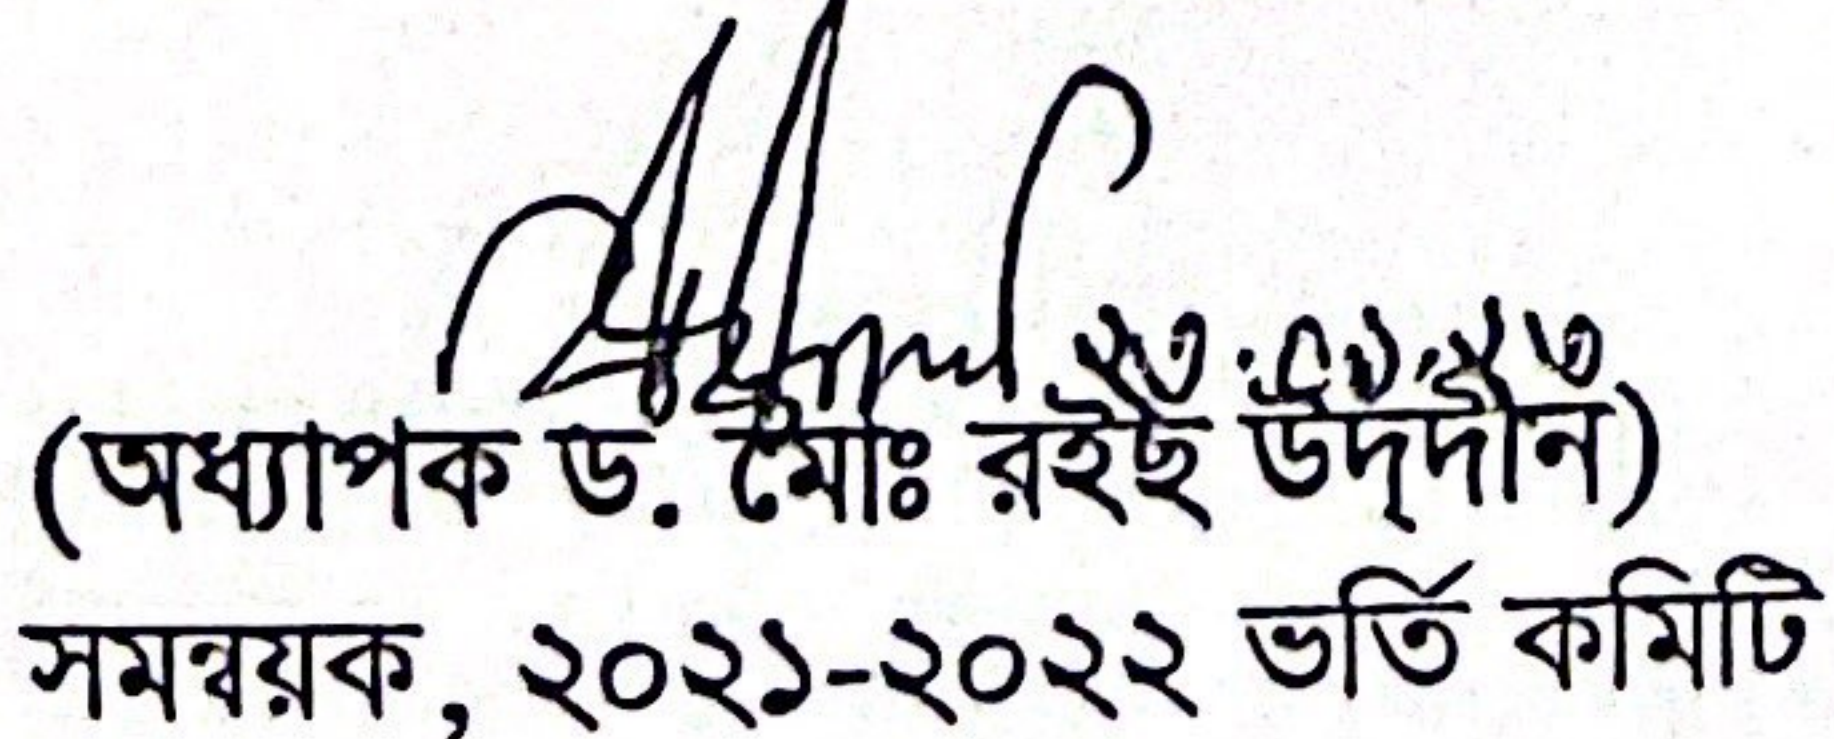 (অধ্যাপক ড. মোঃ রইছ উদ্‌দীন)
সমন্বয়ক, ২০২১-২০২২ ভর্তি কমিটি